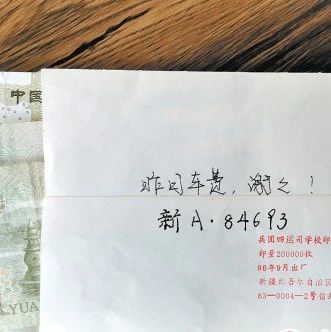 中国
昨日车费，谢之！
新A·84693
兵团四运司学校印
印量200000枚
96年9月出厂
新疆维吾尔自治区
83—0004—2号信
YUAN